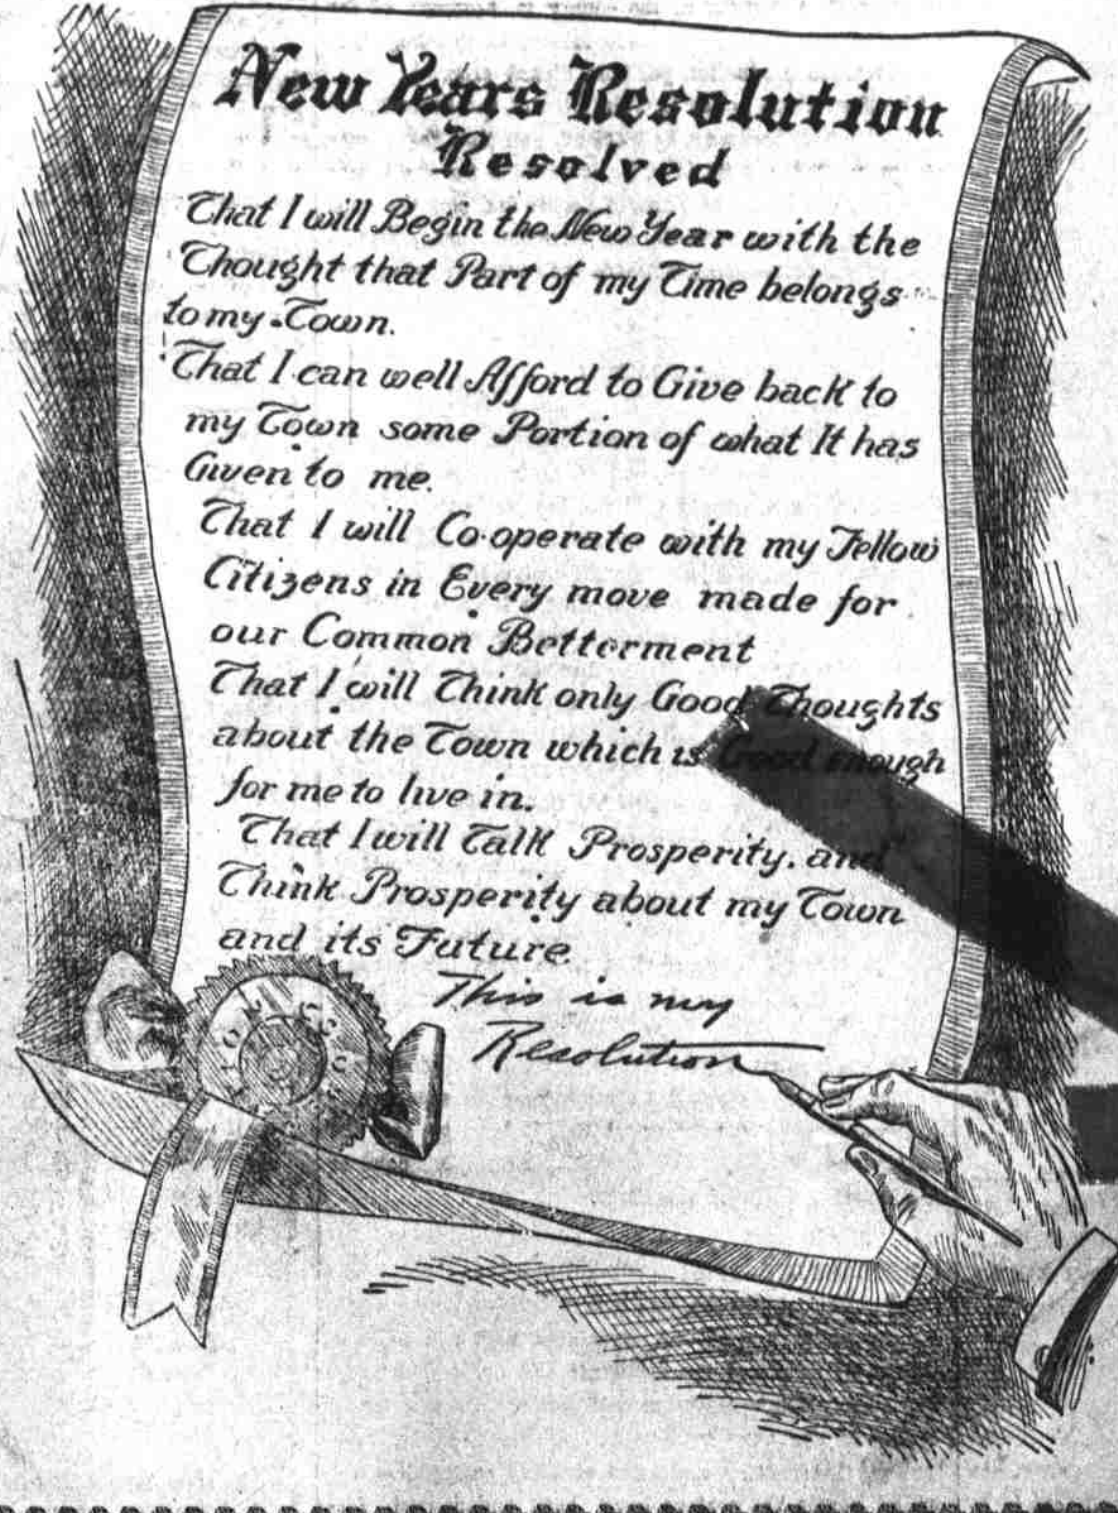 New Years Resolution
Resolved
That I will Begin the New Year with the
Thought that Part of my Time belongs
to my Town.
That I can well Afford to Give back to
my Town some Portion of what It has
Given to me.
That I will Co-operate with my Fellow
Citizens in Every move made for
our Common Betterment
That I will Think only Good Thoughts
about the Town which is Good enough
for me to live in.
That I will Talk Prosperity, and
Think Prosperity about my Town
and its Future
This is my
Resolution